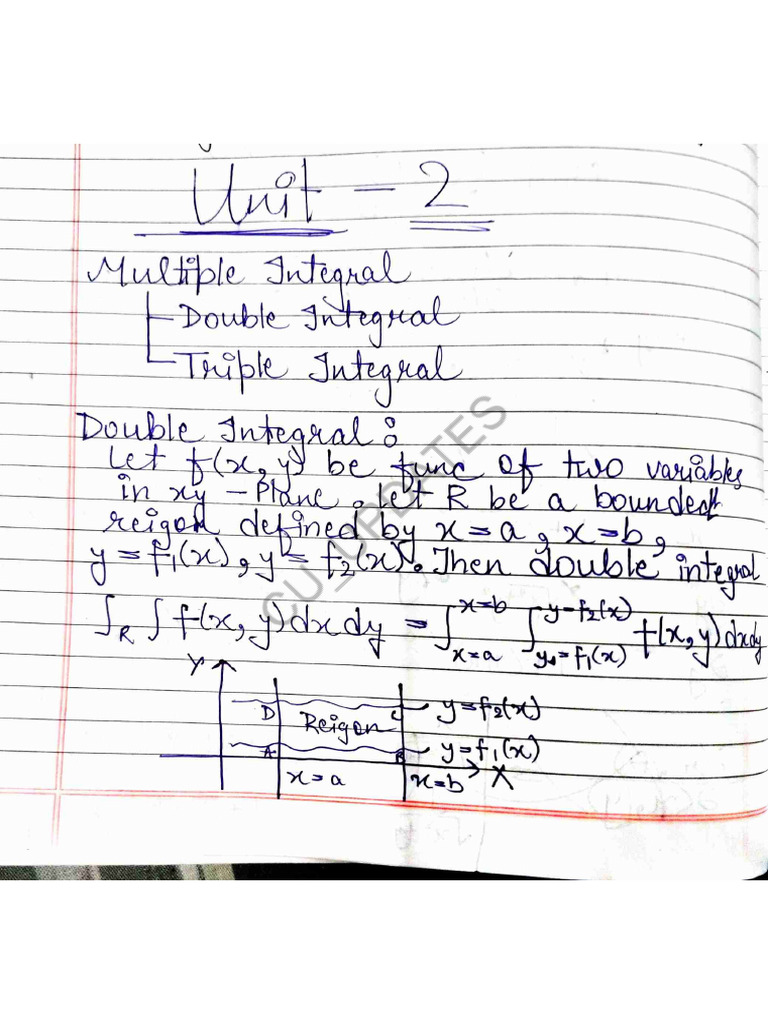 Unit - 2
Multiple Integral
Double Integral
Triple Integral
Double Integral :
Let f(x, y) be func of two variables
in xy - Plane. Let R be a bounded
reigon defined by x = a, x = b,
y = f₁(x), y = f₂(x). Then double integral
∫R ∫ f(x, y) dx dy = ∫x=a x=b ∫y=f₁(x) y=f₂(x) f(x, y) dx dy
Y
D Reigon C y = f₂(x)
A B y = f₁(x)
x = a x = b X
CU_UPDATES